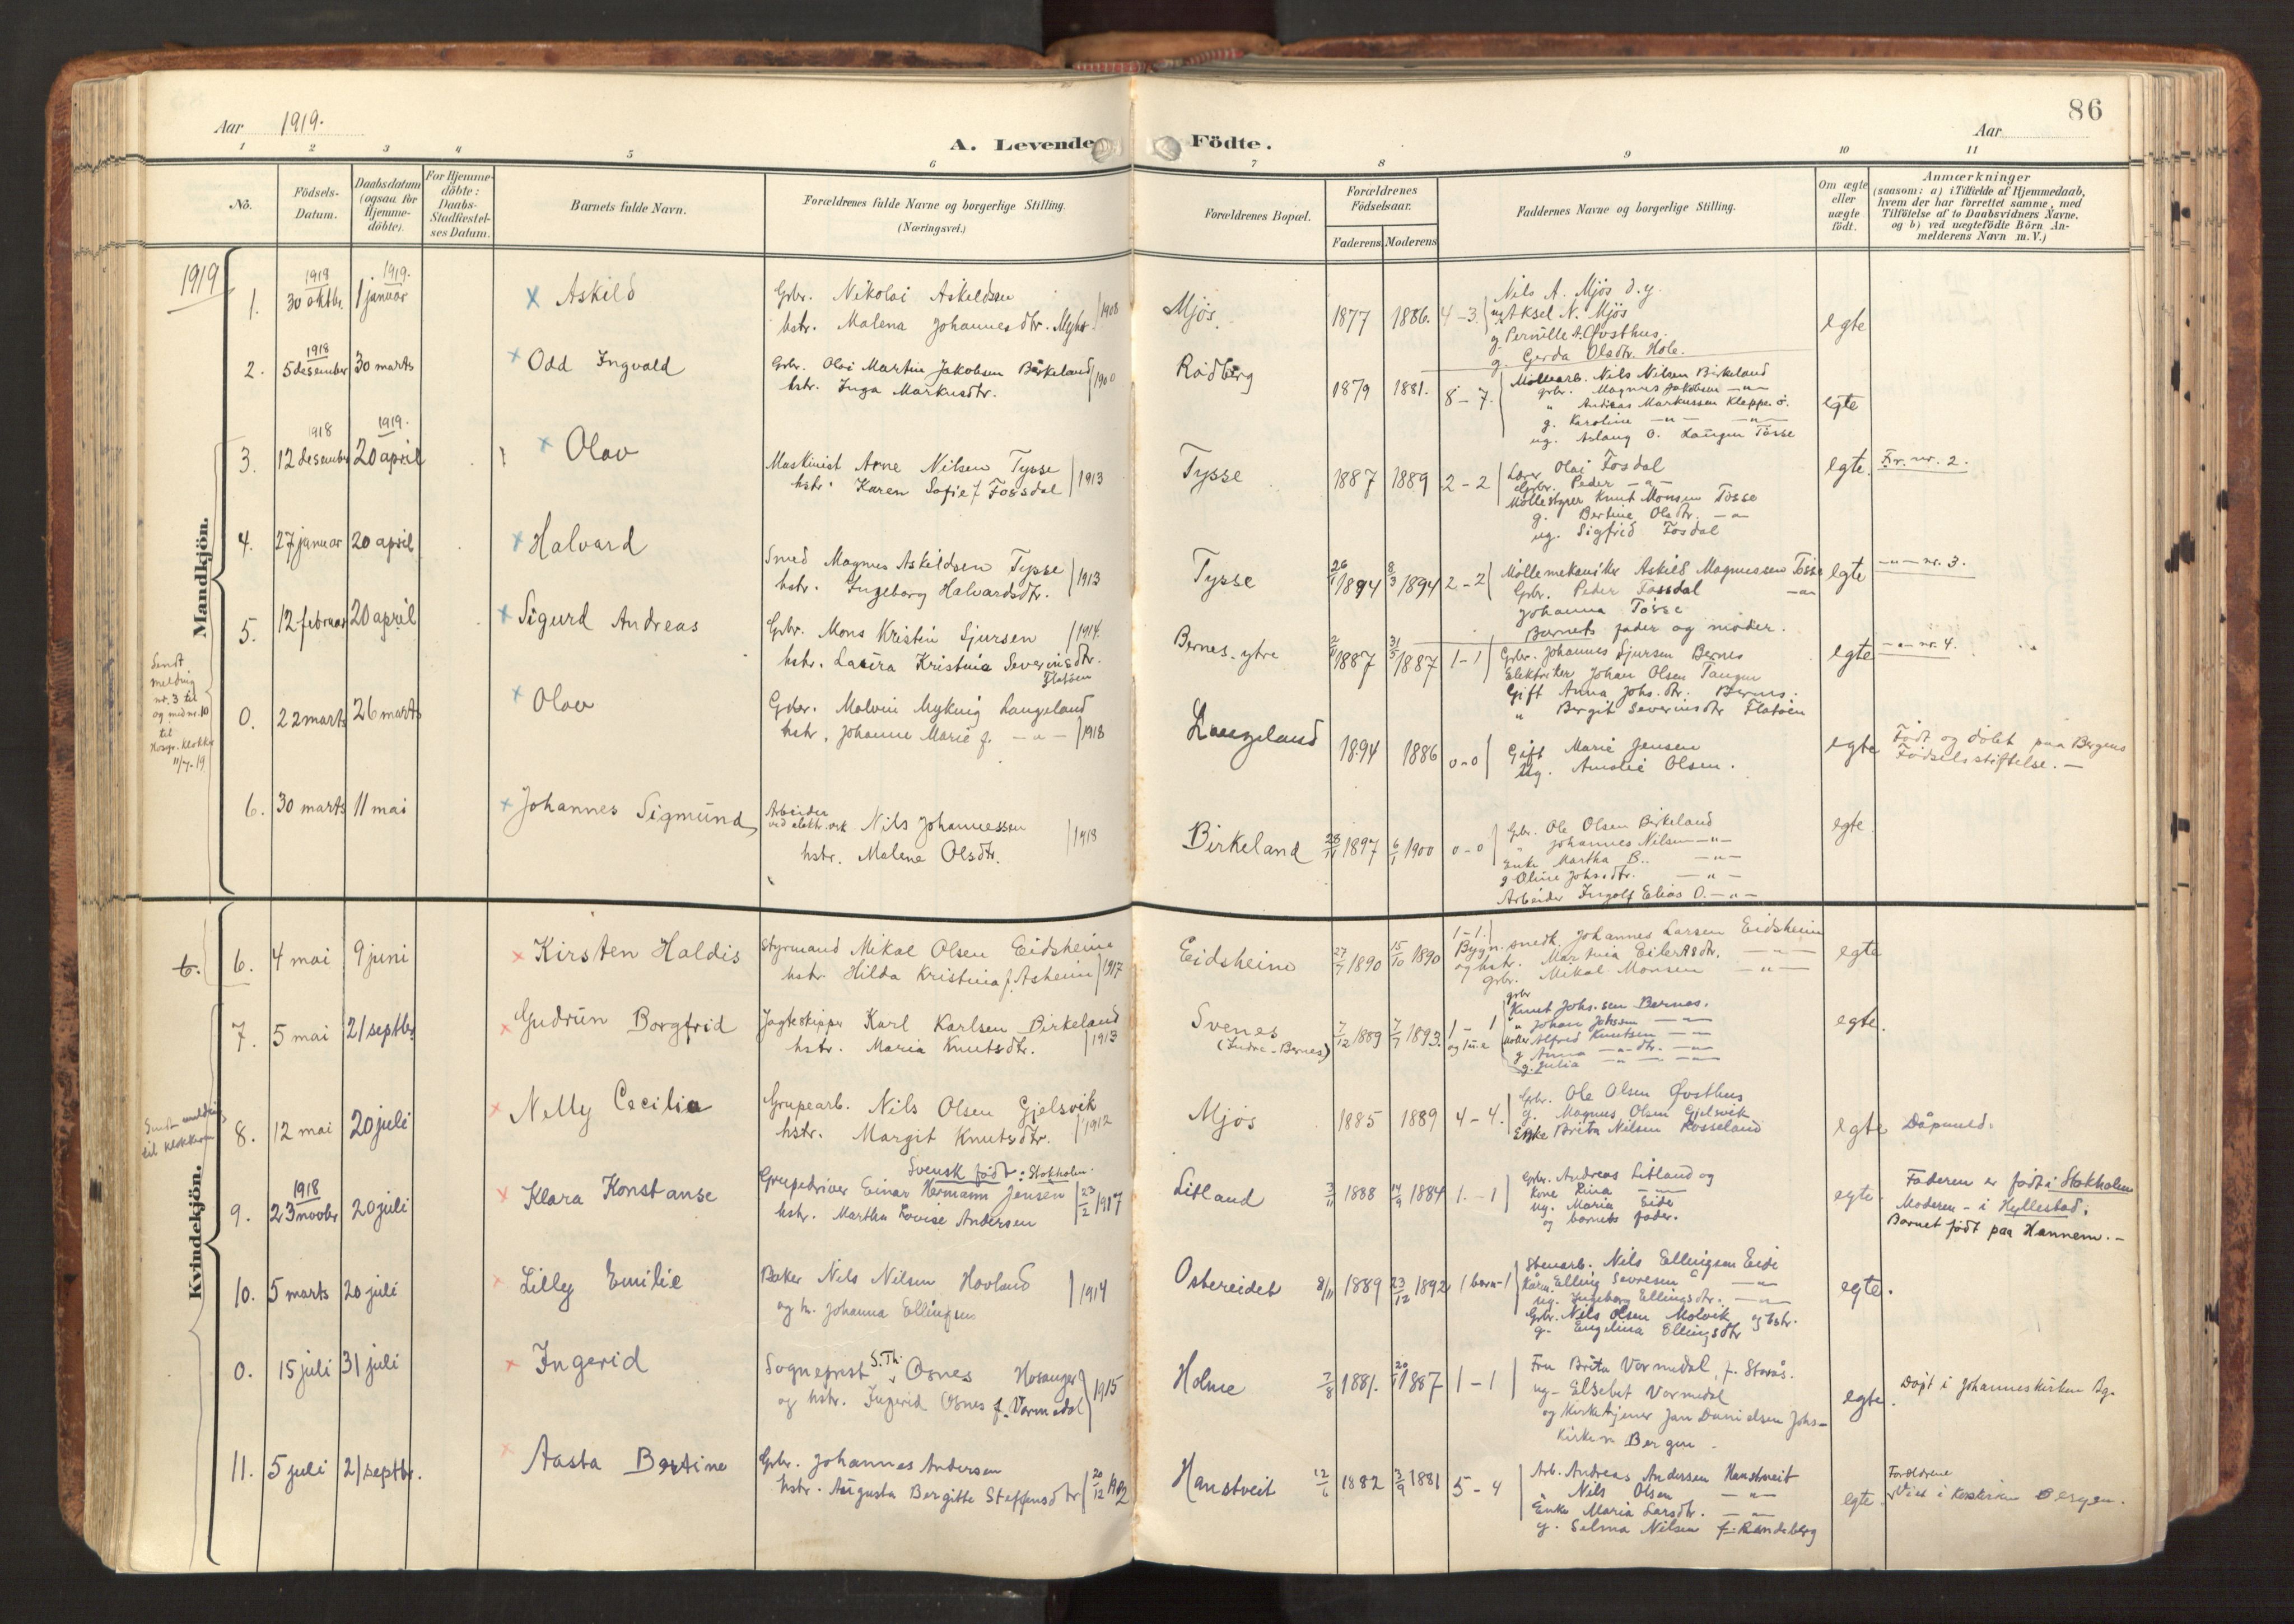 86
Aar 1919.
A. Levende Födte.
Aar
1 2 3 4 5 6 7 8 9 10 11
No.
Födsels-Datum.
Daabsdatum (ogsaa for Hjemme-döbte).
For Hjemme-döbte: Daabs-Stadfæstel-ses Datum.
Barnets fulde Navn.
Forældrenes fulde Navne og borgerlige Stilling.
(Næringsvei.)
Forældrenes Bopæl.
Forældrenes Födselsaar.
Faderens Moderens
Faddernes Navne og borgerlige Stilling.
Om ægte eller uægte födt.
Anmærkninger
(saasom: a) i Tilfælde af Hjemmedaab,
hvem der har forrettet samme, med
Tilföielse af to Daabsvidners Navne.
og b) ved uægtefödte Börn An-
melderens Navn m.V.)
Mandkjön.
1919
1. 1918 30 oktbr. 1919. 1 januar x Askild
Gbr. Nikolai Askeldsen
hstr. Malena Johannesdtr. Myhr 1908
Mjös. 1877 1886. 4-3.
Nils A. Mjös d.y.
Aksel N. Mjös
g. Pernille A. Øvsthus.
g. Gerda Olsdtr. Hole.
egte
2. 1918 5 desember 30 marts x Odd Ingvald
Gbr. Olai Martin Jakobsen Birkeland
hstr. Inga Markusdtr. 1900
Rödberg 1879 1881. 8-7.
Möllearb. Nils Nilsen Birkeland
grbr. Magnus Jakobsen -"-
" Andreas Markussen Kleppe.
g. Karoline -"- -"-
ug. Aslaug O. Laugen Tösse
egte
3. 1918 12 desember 1919. 20 april x Olav
Maskinist Arne Nilsen Tysse
hstr. Karen Sofie f. Fossdal 1913
Tysse 1887 1889 2-2
Lærer Olai Fosdal
Grbr. Peder -"-
Möllestyrer Knut Monsen Tösse
g. Bertine Olsdtr. -"-
ug. Sigfrid Fosdal
egte. Fr. nr. 2.
4. 27 januar 20 april x Halvard
Smed Magnus Askeldsen Tysse
hstr. Ingeborg Halvardsdtr. 1913
Tysse 26/1 1894 8/3 1894 2-2
Möllemekaniker Askild Magnussen Tösse
Grbr. Peder Fossdal -"-
Johanna Tösse
Barnets fader og moder.
egte -"- nr. 3.
5. 12 februar 20 april x Sigurd Andreas
Gbr. Mons Kristin Sjursen 1914.
hstr. Laura Kristina Severinsdtr. Flatöen
Bernes ytre 1887 31/5 1887 1-1
Grbr. Johannes Sjursen Bernes
Elektriker Johan Olsen Tangen
Gift Anna Johs.dtr. Bernes.
" Bergit Severinsdtr Flatöen
egte -"- nr. 4.
Sendt
melding
nr. 3 til
og med nr. 10
til
Hosgr. klokker
11/7-19
0. 22 marts 26 marts x Olav
Gbr. Malvin Myking Langeland
hstr. Johanne Marie f. -"- 1918
Langeland 1894 1886 0-0
Gift Marie Jensen
Ug. Amalie Olsen.
egte
Födt og döbt paa Bergens
Födselsstiftelse. -
6. 30 marts 11 mai x Johannes Sigmund
Arbeider
ved elektr. verk Nils Johannessen
hstr. Malena Olsdtr. 1918
Birkeland 28/11 1897 6/1 1900 0-0
Grbr. Ole Olsen Birkeland
" Johannes Nilsen -"-
Enke Martha B. -"-
g. Oline Johs.dtr. -"-
Arbeider Ingolf Elias O. -"-
egte
Kvindekjön.
6. 6. 4 mai 9 juni x Kirsten Haldis
Styrmand Mikal Olsen Eidsheim
hstr. Hilda Kristina f. Asheim 1917
Eidsheim 27/7 1890 15/10 1890 1-1.
Bygn. snedk. Johannes Larsen Eidsheim
og hstr. Martina Eilertsdtr. -"-
grbr. Mikal Monsen -"-
egte
7. 5 mai 21 septbr. x Gudrun Borgfrid
Jagteskipper Karl Karlsen Birkeland
hstr. Maria Knutsdtr. 1913
Svenes
(Indre-Bernes) 7/12 1889 7/7 1893. 1-1
grbr
Knut Johs.sen Bernes.
" Johan Johssen -"-
Alfred Knutsen -"-
g Anna -"- dtr. -"-
g. Julia -"- -"-
egte.
Sendt melding
til klokkeren
8. 12 mai 20 juli x Nelly Cecilia
Grupearb. Nils Olsen Gjelsvik
hstr. Margit Knutsdtr. 1912
Mjös 1885 1889 4-4.
Grbr. Ole Olsen Øvsthus
g. Magnus Olsen Gjelsvik
Enke Brita Nilsen Rosseland
egte Dåpmeld.
9. 1918 23 novbr 20 juli x Klara Konstanse
Svensk födt: Stokholm.
Grupedriver Einar Hermann Jensen
hstr. Martha Lovise Andersen 23/2 1917
Litland 3/11 1888 14/9 1884 1.-1
Grbr. Andreas Litland og
kone Rina -"-
ug. Maria Eide
og barnets fader.
egte.
Faderen er födt i Stokholm
Moderen - i Hyllestad.
Barnet födt paa Hannem.-
10. 5 marts 20 juli x Lilly Emilie
Baker Nils Nilsen Hovland
og h. Johanna Ellingsen 1914
Ostereidet 8/11 1889 23/12 1892 1 barn-1
Stenarb. Nils Ellingsen Eidi
Elling Sevresen -"-
ug. Ingeborg Ellingsdtr. -"-
Grbr. Nils Olsen Molvik og hstr.
g. Engelina Ellingsdtr
egte.
0. 15 juli 31 juli x Ingerid
Sogneprest S.Th. Osnes Hosanger
og hstr. Ingerid Osnes f. Vormedal 1915
Holme 7/8 1881. 20/11 1887 1-1
Fru Brita Vormedal, f. Storås.
ug. Elsebet Vormedal
og Kirketjener Jan Danielsen Johs-
Kirken Bergen -
egte. Döpt i Johanneskirken Bg.
11. 5 juli 21 septbr. x Aasta Bertine
Grbr. Johannes Andersen
hstr. Augusta Bergitte Steffensdtr 20/12
Hanstveit 12/6 1882 3/9 1881 5-4
Arb. Andreas Andersen Hanstveit
" Nils Olsen -"-
Enke Maria Larsdtr. -"-
g. Selma Nilsen f. Randeberg
egte.
Foreldrene
Viet i Korskirken Bergen.